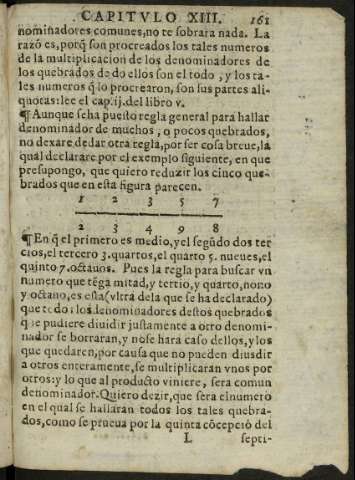 CAPITVLO XIII. 161
nominadores comunes, no te sobrara nada. La
razõ es, porq̃ son procreados los tales numeros
de la multiplicacion de los denominadores de
los quebrados de do ellos son el todo, y los ta-
les numeros q̃ lo procrearon, son sus partes ali-
quotas: lee el cap. ij. del libro v.
¶ Aunque se ha puesto regla general para hallar
denominador de muchos, o pocos quebrados,
no dexare de dar otra regla, por ser cosa breue, la
qual declarare por el exemplo siguiente, en que
presupongo, que quiero reduzir los cinco que-
brados que en esta figura parecen.
1 2 3 5 7
2 3 4 9 8
¶ En q̃ el primero es medio, y el segũdo dos ter
cios, el tercero 3. quartos, el quarto 5. nueues, el
quinto 7. octauos. Pues la regla para buscar vn
numero que tẽga mitad, y tertio, y quarto, nono
y octano, es esta (vltra dela que se ha declarado)
que todos los denominadores destos quebrados
que pudiere diuidir justamente a otro denomi-
nador se borraran, y no se hara caso dellos, y los
que quedaren, por causa que no pueden diuidir
a otros enteramente, se multiplicaran vnos por
otros: y lo que al producto viniere, sera comun
denominador. Quiero dezir, que sera el numero
en el qual se hallaran todos los tales quebra-
dos, como se prueua por la quinta cõcepciõ del
L septi-